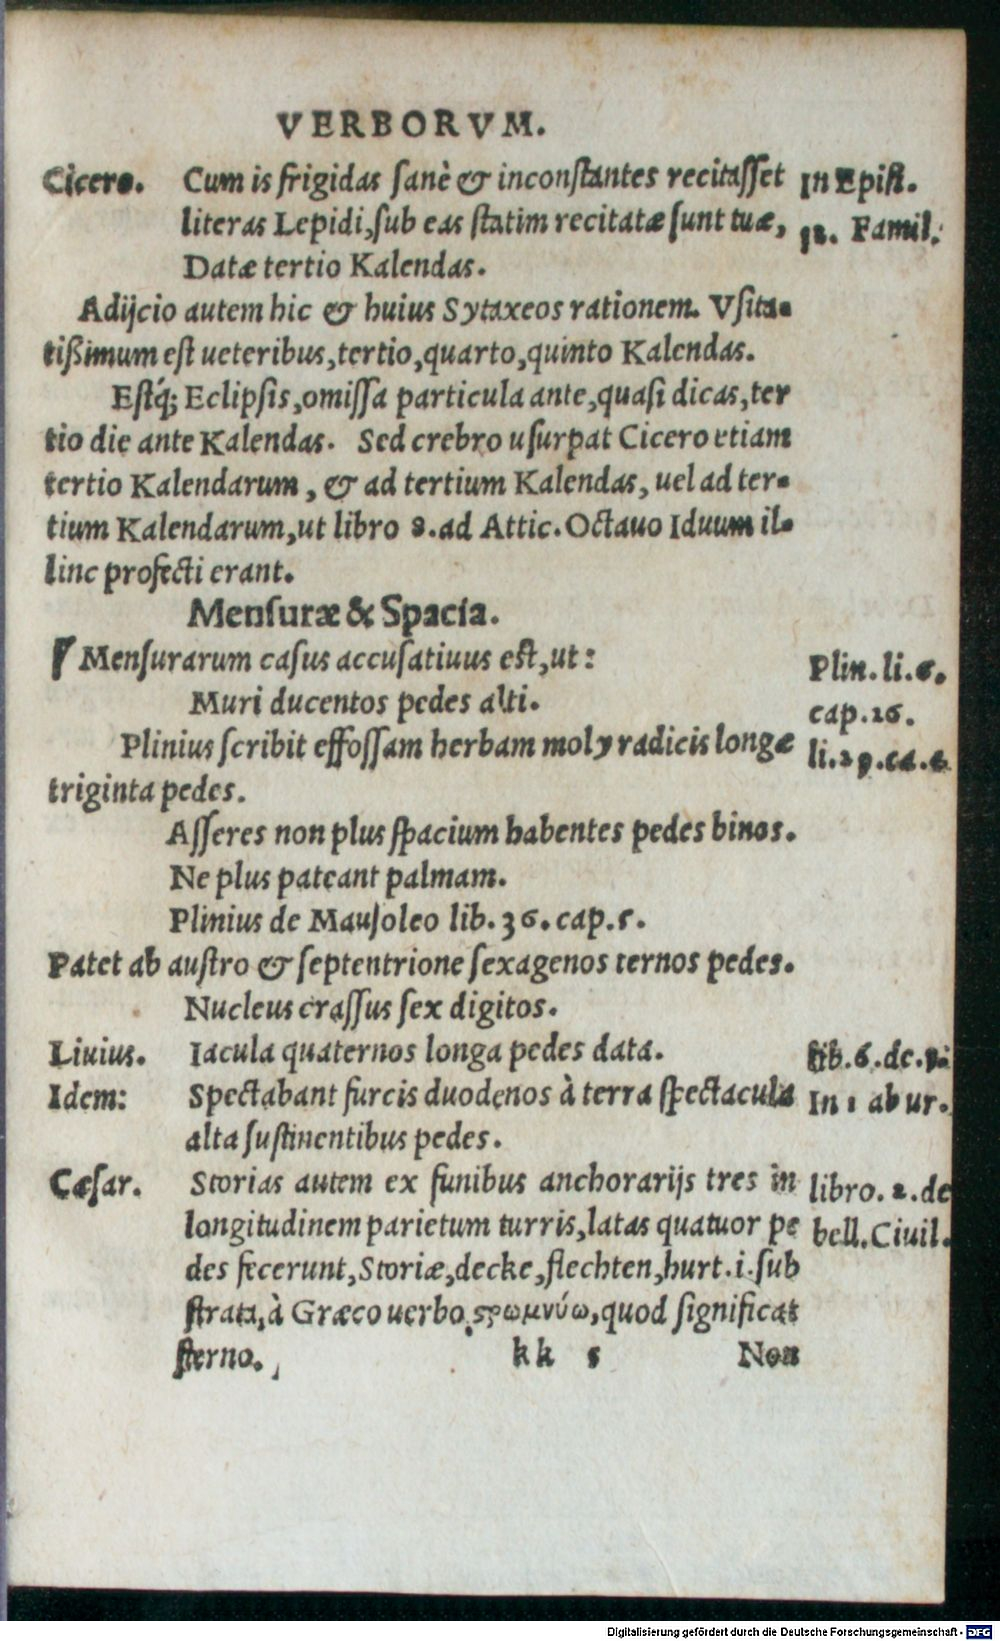 VERBORVM.
Cicero. Cum is frigidas sanè & inconstantes recitasset In Epist.
literas Lepidi, sub eas statim recitatæ sunt tuæ, 12. Famil.
Datæ tertio Kalendas.
Adijcio autem hic & huius Sytaxeos rationem. Vsita-
tißimum est ueteribus, tertio, quarto, quinto Kalendas.
Estq́; Eclipsis, omissa particula ante, quasi dicas, ter
tio die ante Kalendas. Sed crebro usurpat Cicero etiam
tertio Kalendarum, & ad tertium Kalendas, uel ad ter-
tium Kalendarum, ut libro 8. ad Attic. Octauo Iduum il-
linc profecti erant.
Mensuræ & Spacia.
Mensurarum casus accusatiuus est, ut: Plin. li. 6.
Muri ducentos pedes alti. cap. 26.
Plinius scribit effossam herbam moly radicis longæ li. 29. ca. 4.
triginta pedes.
Asseres non plus spacium habentes pedes binos.
Ne plus pateant palmam.
Plinius de Mausoleo lib. 36. cap. 5.
Patet ab austro & septentrione sexagenos ternos pedes.
Nucleus crassus sex digitos.
Liuius. Iacula quaternos longa pedes data. lib. 6. de
Idem: Spectabant furcis duodenos à terra spectacula In 1 ab ur.
alta sustinentibus pedes.
Cæsar. Storias autem ex funibus anchorarijs tres in libro. 2. de
longitudinem parietum turris, latas quatuor pe bell. Ciuil.
des fecerunt, Storiæ, decke, flechten, hurt. i. sub
strata, à Græco uerbo ςρωμνύω, quod significat
sterno.
kk 5 Non
Digitalisierung gefördert durch die Deutsche Forschungsgemeinschaft - DFG